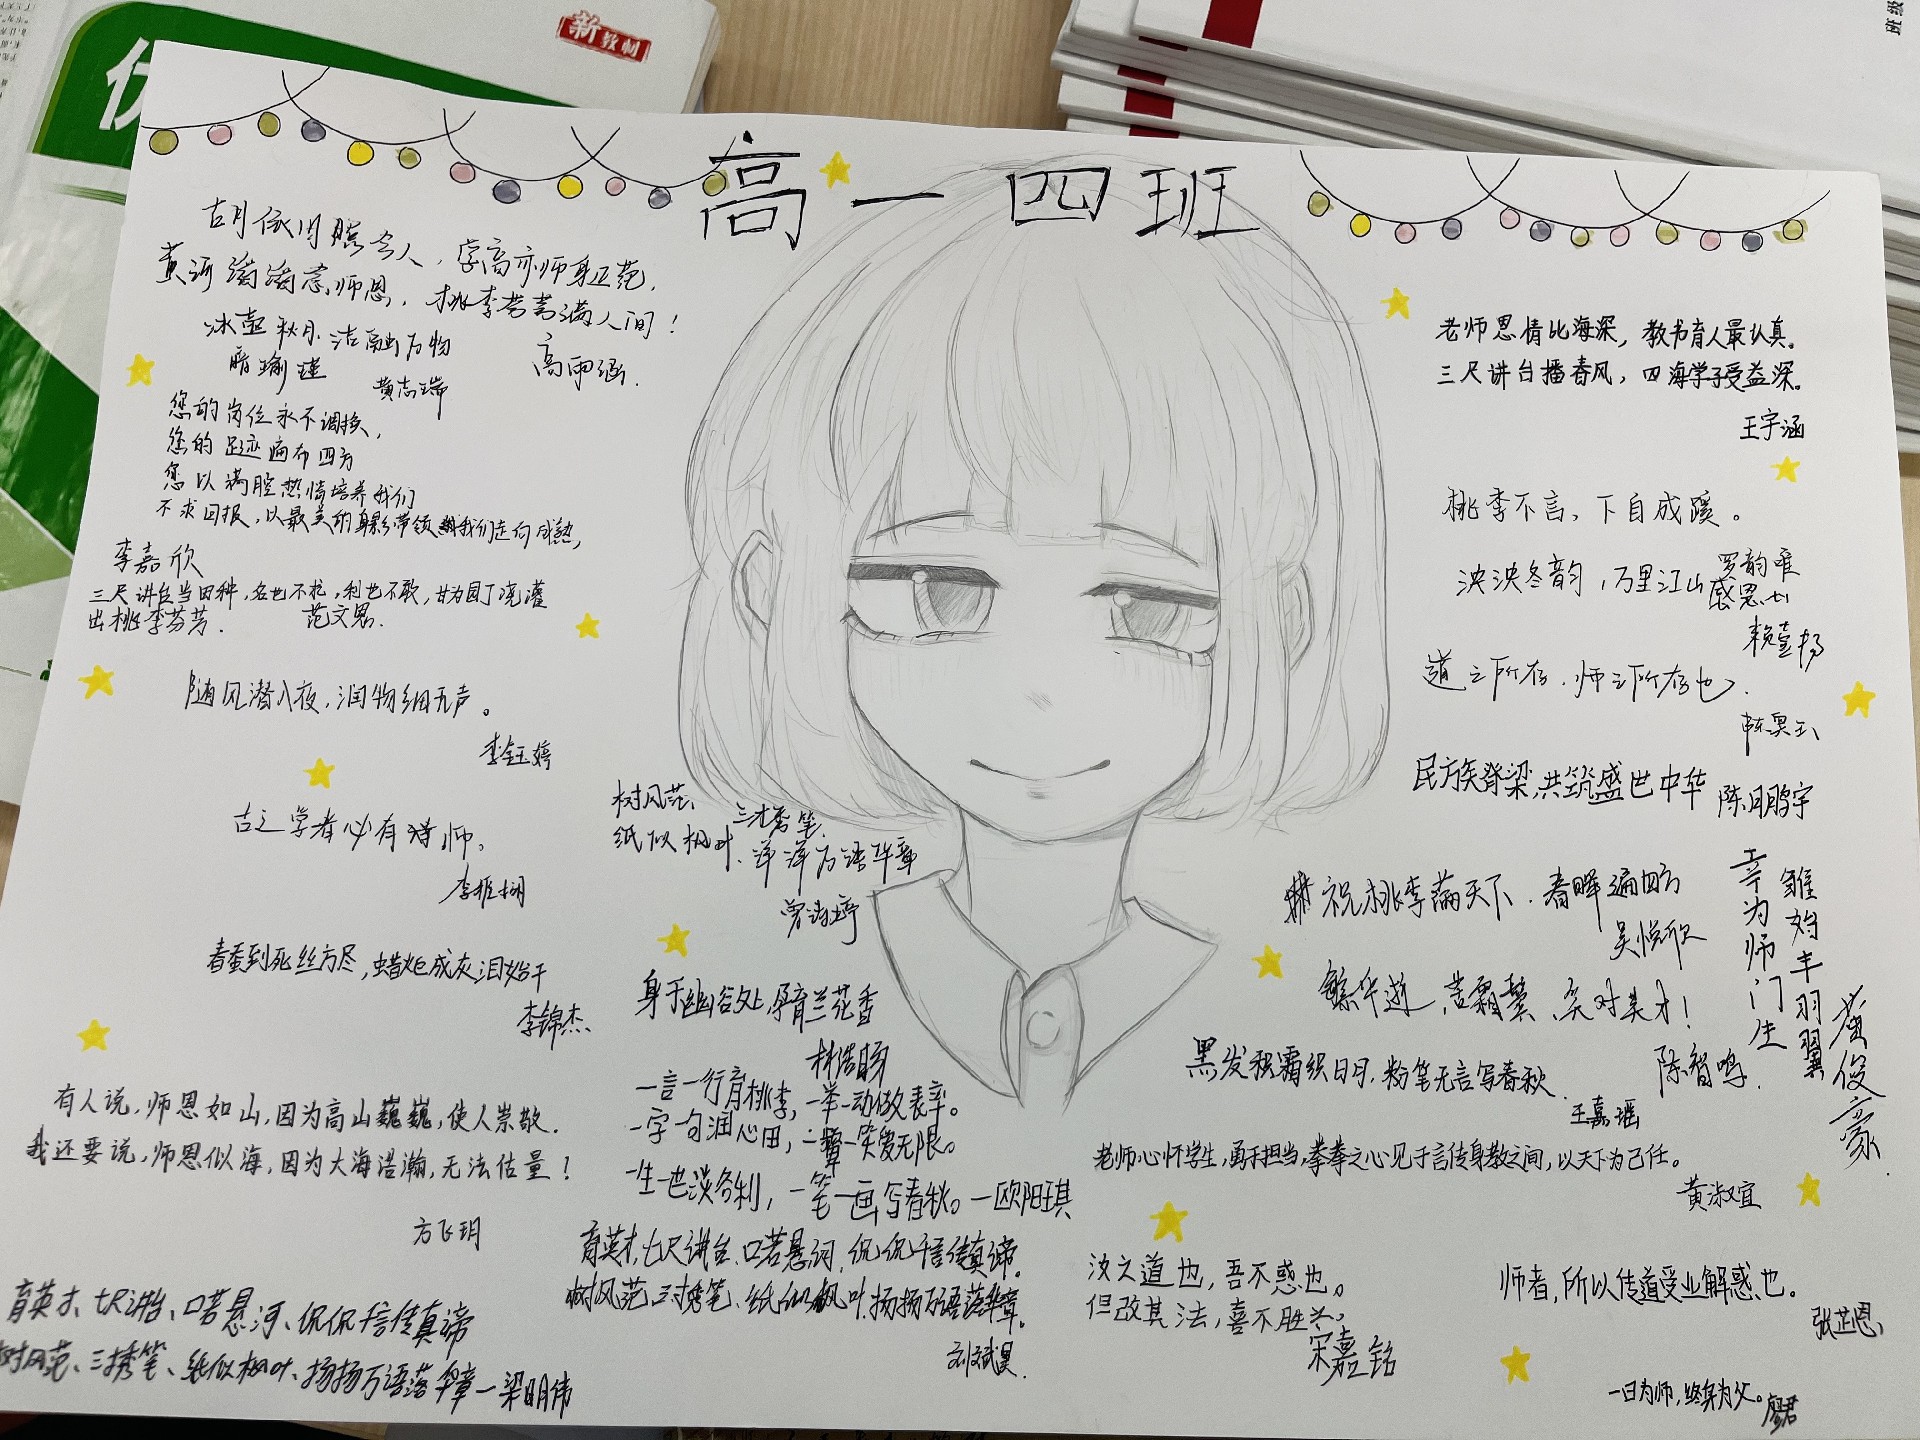 新教制
高一四班
黄河滔滔念师恩，桃李芬芳满人间！
冰壶秋月洁融万物
高雨涵.
黄志瑞
您的岗位永不调换，
您的足迹遍布四方
您以满腔热情培养我们
不求回报，以最美的身影带领我们走向成熟，
李嘉欣
三尺讲台当田种，名也不求，利也不敢，甘为园丁浇灌
出桃李芬芳.
范文君.
随风潜入夜，润物细无声。
李钰婷
古之学者必有得师。
春蚕到死丝方尽，蜡炬成灰泪始干
李锦杰
有人说，师恩如山，因为高山巍巍，使人崇敬.
我还要说，师恩似海，因为大海浩瀚，无法估量！
方飞玥
育英才、七尺讲台、口若悬河、侃侃信传真谛
树风范、三擒笔、纸似枫叶、扬扬万语落华章—梁明伟
树风范、三才秀笔、
纸似枫叶、洋洋万语华章
身于幽谷处，孕育兰花香
林浩旸
一言一行育桃李，一举一动做表率。
一字一句润心田，一颦一笑爱无限。
一生一世淡名利，一笔一画写春秋。—欧阳琪
育英才，七尺讲台、口若悬河，侃侃千言传真谛。
树风范三寸秀笔、纸似枫叶、扬扬万语落华章。
刘斌昊.
老师恩情比海深，教书育人最认真。
三尺讲台播春风，四海学子受益深。
王宇涵
桃李不言，下自成蹊。
罗韵唯
泱泱冬韵，万里江山感恩心
赖萱扬
道之所存，师之所存也.
陈昊玉
民族脊梁，共筑盛世中华 陈鹏宇
祝桃李满天下，春晖遍四方
吴悦欣
繁华逝，苦霜鬓，笑对英才！
陈智鸣.
黑发积霜织日月，粉笔无言写春秋.
王嘉瑶
雏始丰羽翼
幸为师门生
黄俊豪.
老师心怀学生，勇于担当，拳拳之心见于言传身教之间，以天下为己任。
黄淑宜
汝之道也，吾不惑也。
但改其法，喜不胜兮。
宋嘉铭
师者，所以传道受业解惑也。
张芷恩
一日为师，终身为父。
廖君